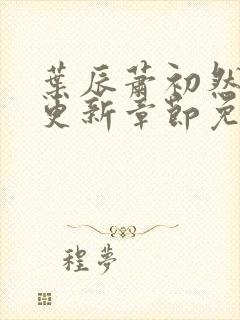 葉辰蕭初然
更新章節免
程夢